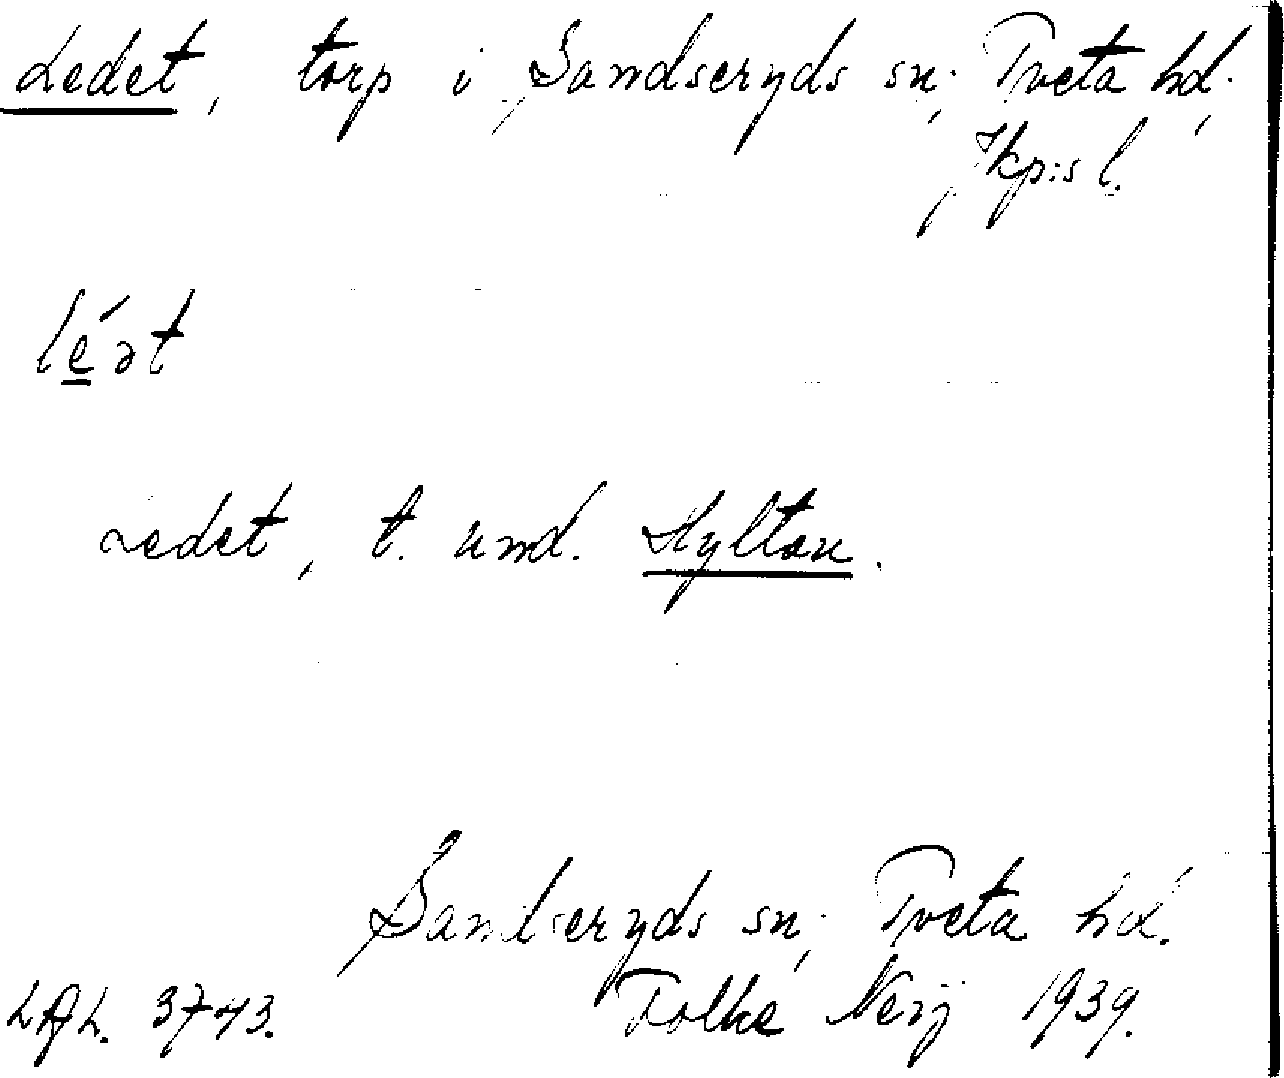 Ledet, torp i Sandseryds sn, Tveta hd,
Jkp:s l.
le̲´ət
Ledet, t. und. Hyltan.
Sandseryds sn, Tveta hd.
LAL. 3743. Folke Nerij 1939.